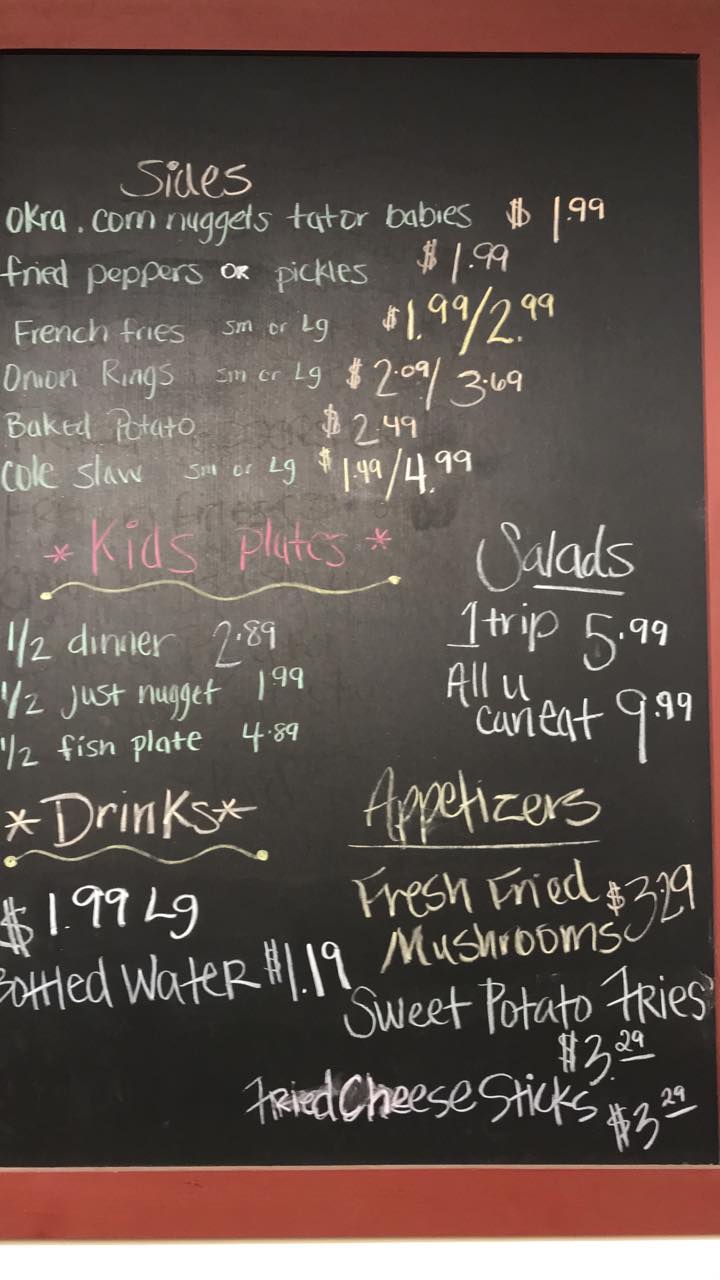 Sides
okra, corn nuggets tator babies $ 1.99
fried peppers OR pickles $ 1.99
French fries sm or Lg $1.99/2.99
Onion Rings sm or Lg $ 2.09/3.69
Baked Potato $ 2.49
Cole slaw sm or Lg $ 1.49/4.99
* Kids plates *
1/2 dinner 2.89
1/2 just nugget 1.99
1/2 fish plate 4.89
Salads
1 trip 5.99
All u
can eat 9.99
*Drinks*
$1.99 Lg
Bottled Water $1.19
Appetizers
Fresh Fried $3.29
Mushrooms
Sweet Potato Fries
$3.29
Fried Cheese Sticks $3.29